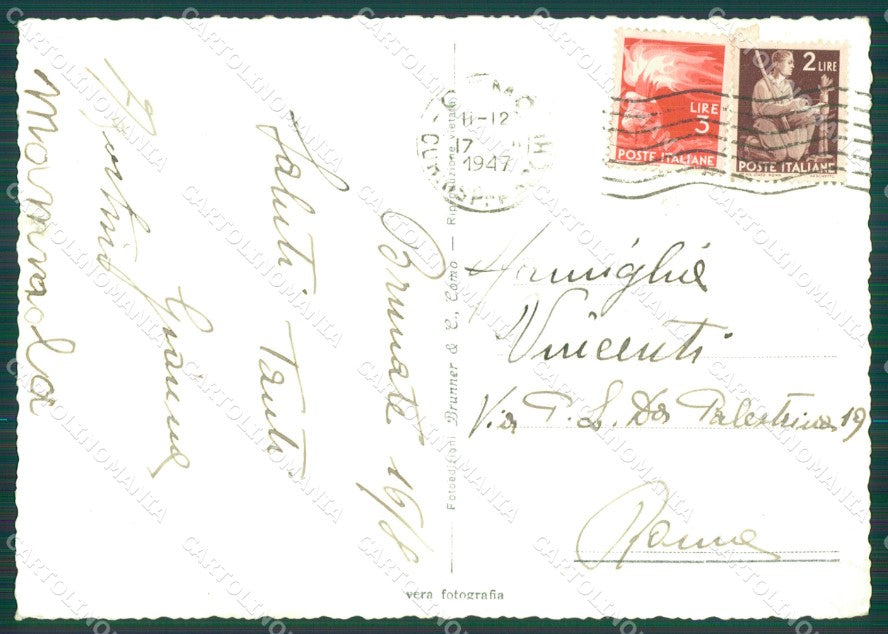 Brunate 16/8
Saluti Tanti
Gianna
Mariarola
Fotoedizioni Brunner & C., Como — Riproduzione vietata
11-12
17
1947
LIRE
3
POSTE ITALIANE
2 LIRE
POSTE ITALIANE
Famiglia
Vincenti
Via P. L. Da Palestrina 19
Roma
vera fotografia
CARTOLINOMANIA